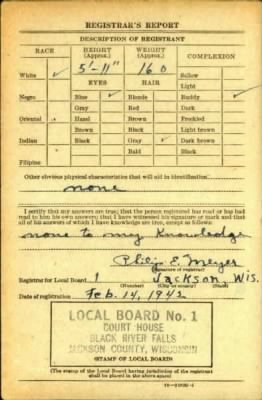 REGISTRAR'S REPORT
DESCRIPTION OF REGISTRANT
RACE HEIGHT (Approx.) WEIGHT (Approx.) COMPLEXION
White ✓ 5'-11" 160 Sallow
EYES HAIR Light
Negro Blue ✓ Blonde Ruddy ✓
Gray Red Dark
Oriental Hazel Brown Freckled
Brown Black Light brown
Indian Black Gray ✓ Dark brown
Bald Black
Filipino
Other obvious physical characteristics that will aid in identification
none
I certify that my answers are true; that the person registered has read or has had
read to him his own answers; that I have witnessed his signature or mark and that
all of his answers of which I have knowledge are true, except as follows:
none to my Knowledge
Philip E. Meyer
(Signature of registrar)
Registrar for Local Board 1 Jackson, Wis.
(Number) (City or county) (State)
Date of registration Feb. 14, 1942
LOCAL BOARD No. 1
COURT HOUSE
BLACK RIVER FALLS
JACKSON COUNTY, WISCONSIN
(STAMP OF LOCAL BOARD)
(The stamp of the Local Board having jurisdiction of the registrant
shall be placed in the above space)